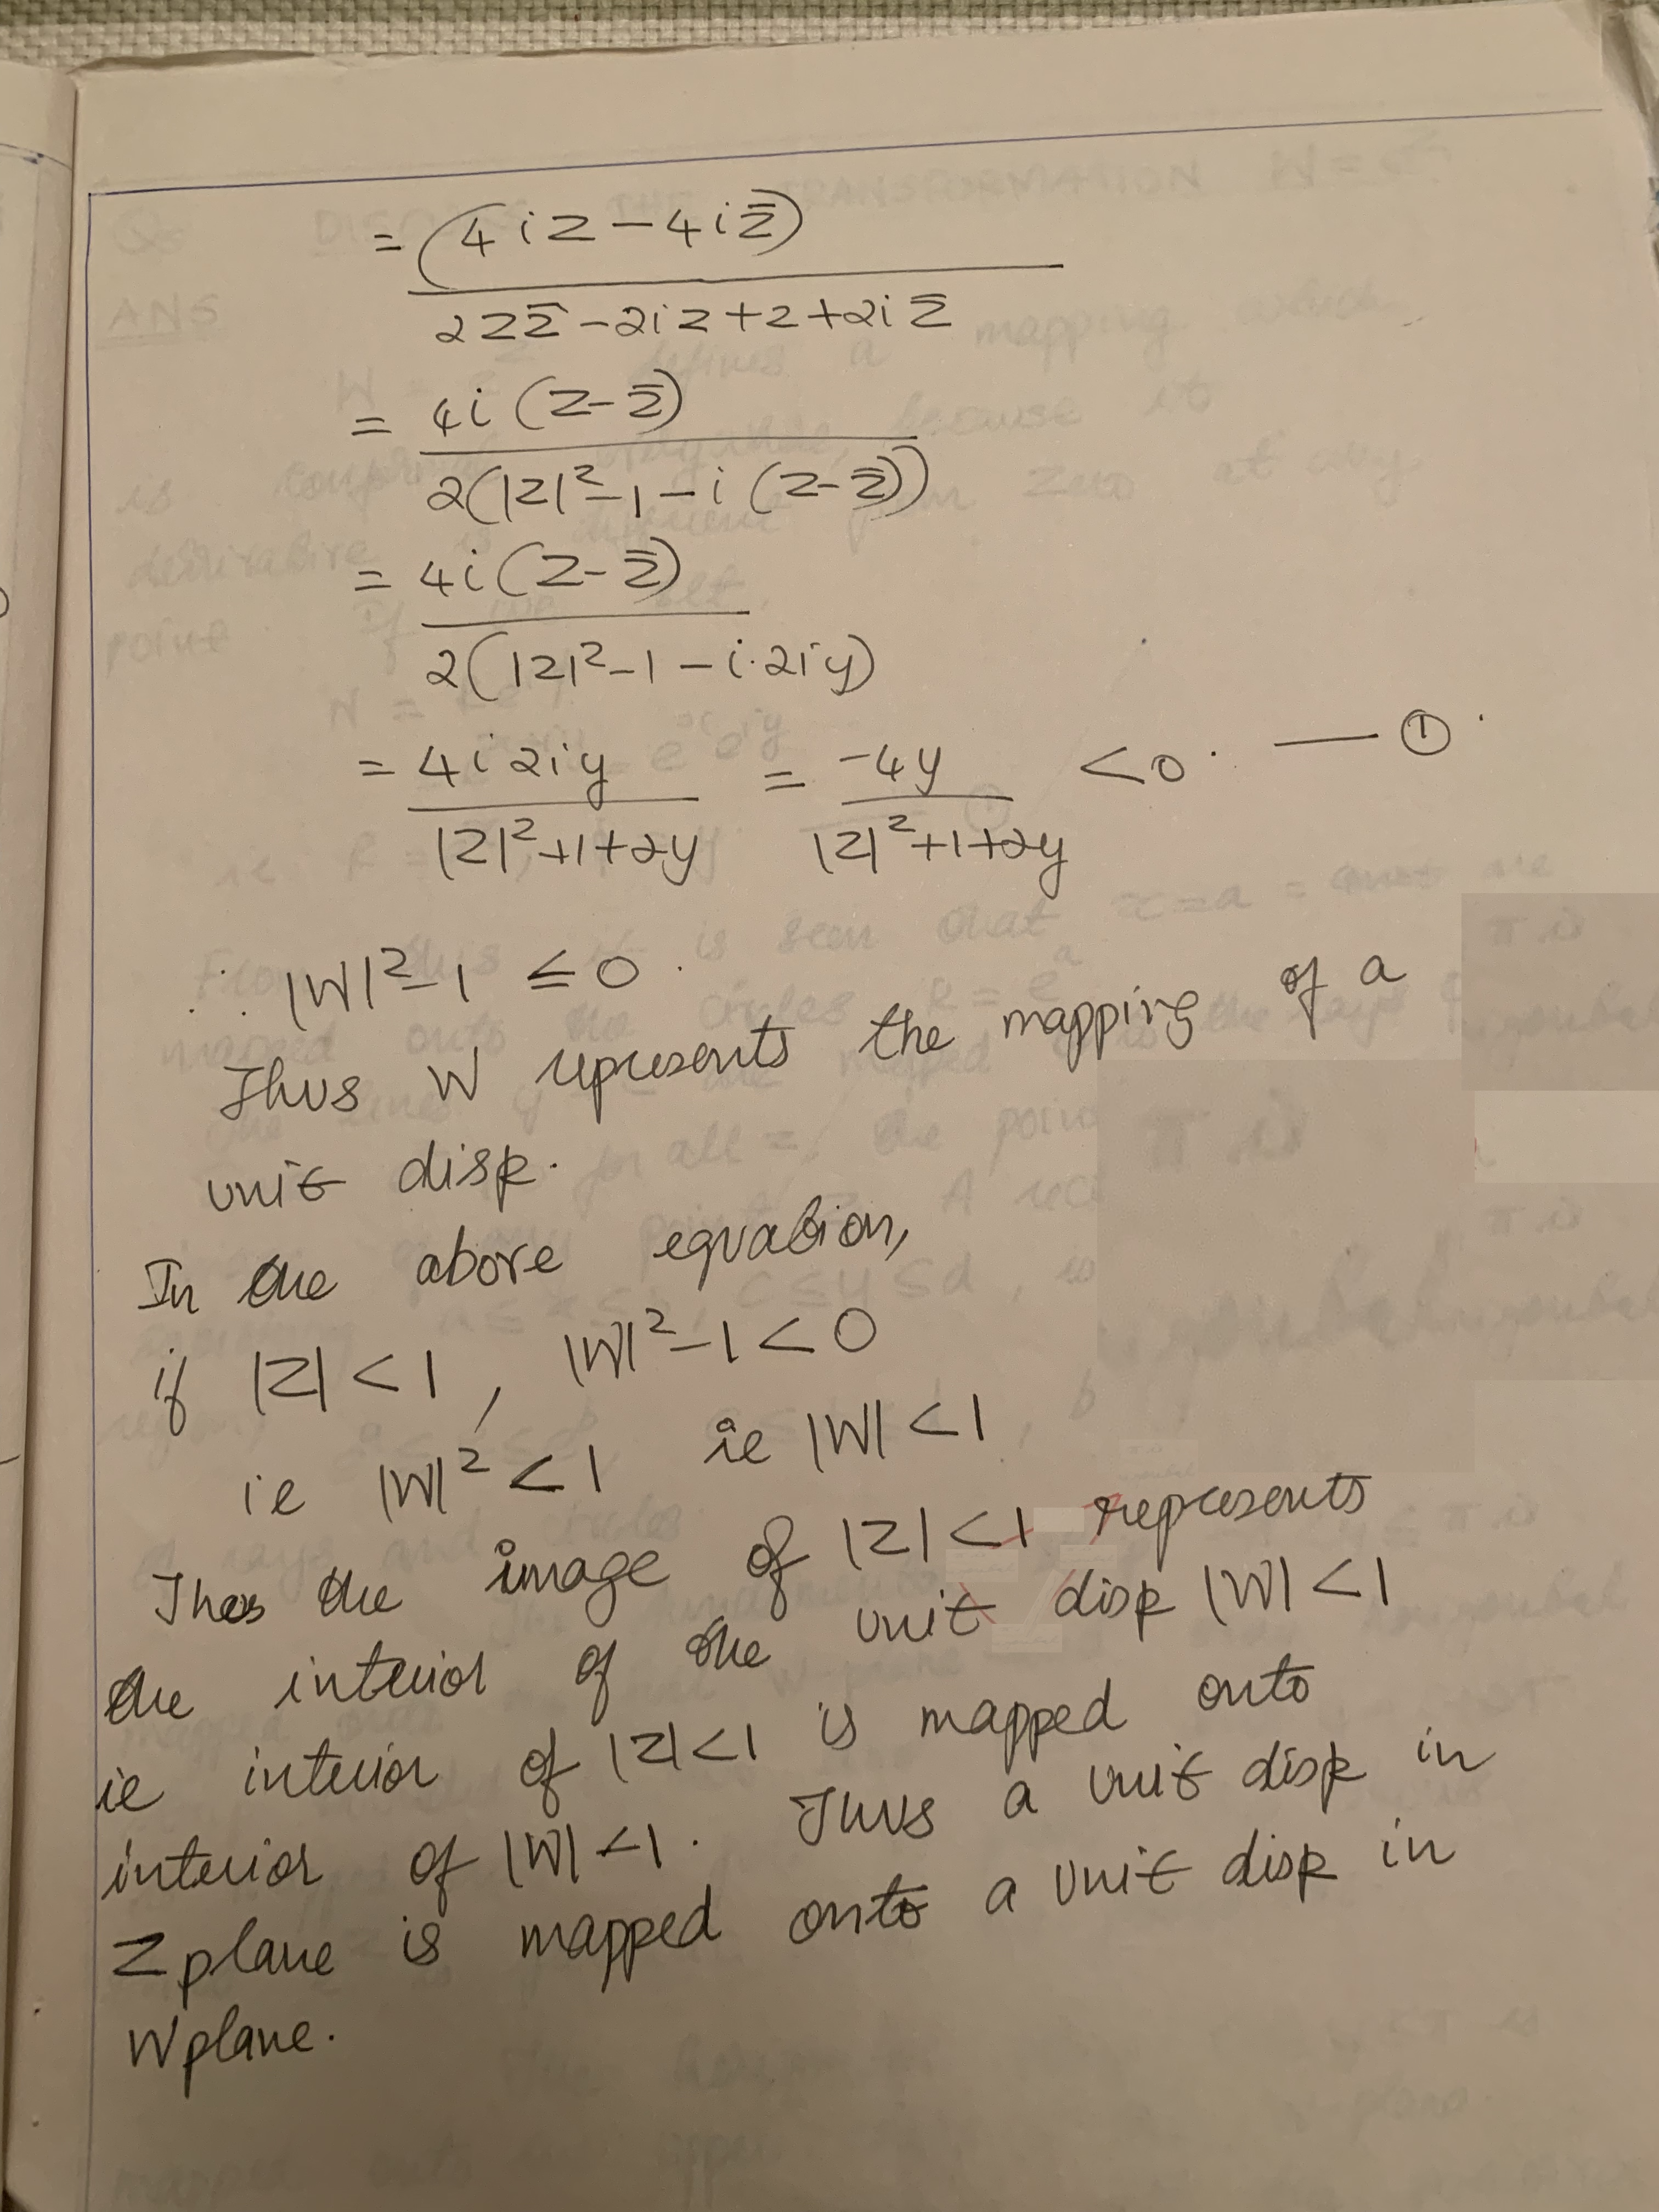 = (4iz - 4iz̄)
2zz̄ - 2iz + 2 + 2iz̄
= 4i(z - z̄)
2(|z|² - 1 - i(z - z̄))
= 4i(z - z̄)
2(|z|² - 1 - i·2iy)
= 4i2iy = -4y < 0. — ①
|z|² + 1 + 2y |z|² + 1 + 2y
∴ |W|² - 1 ≤ 0.
Thus W represents the mapping of a
unit disk.
In the above equation,
if |z| < 1, |W|² - 1 < 0
ie |W|² < 1 ie |W| < 1
Thus the image of |z| < 1 represents
the interior of the unit disk |W| < 1
ie interior of |z| < 1 is mapped onto
interior of |W| < 1. Thus a unit disk in
z plane is mapped onto a unit disk in
W plane.